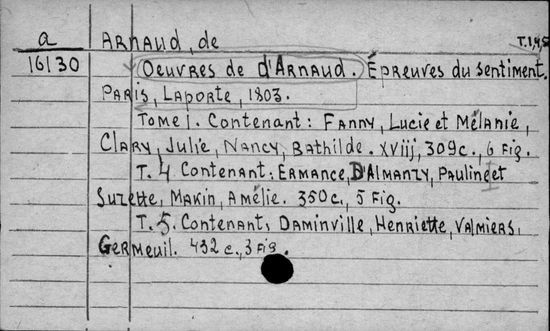 a ARNAUD, de T.1,4,5
16130 Oeuvres de d'ARNAUD. Épreuves du sentiment.
PARIS, LAPORTE, 1803.
Tome I. Contenant: FANNY, Lucie et Mélanie,
CLARY, Julie, NANCY, BAthilde. XViij, 309c., 6 Fig.
T. 4 Contenant: ERMANCE, D'ALMANZY, PAULINE et
Suzette, MAKIN, Amélie. 350c., 5 Fig.
T. 5. Contenant, DAMINville, HENRIETTE, VALMIERS,
GERMEUIL. 432 c., 3 Fig.